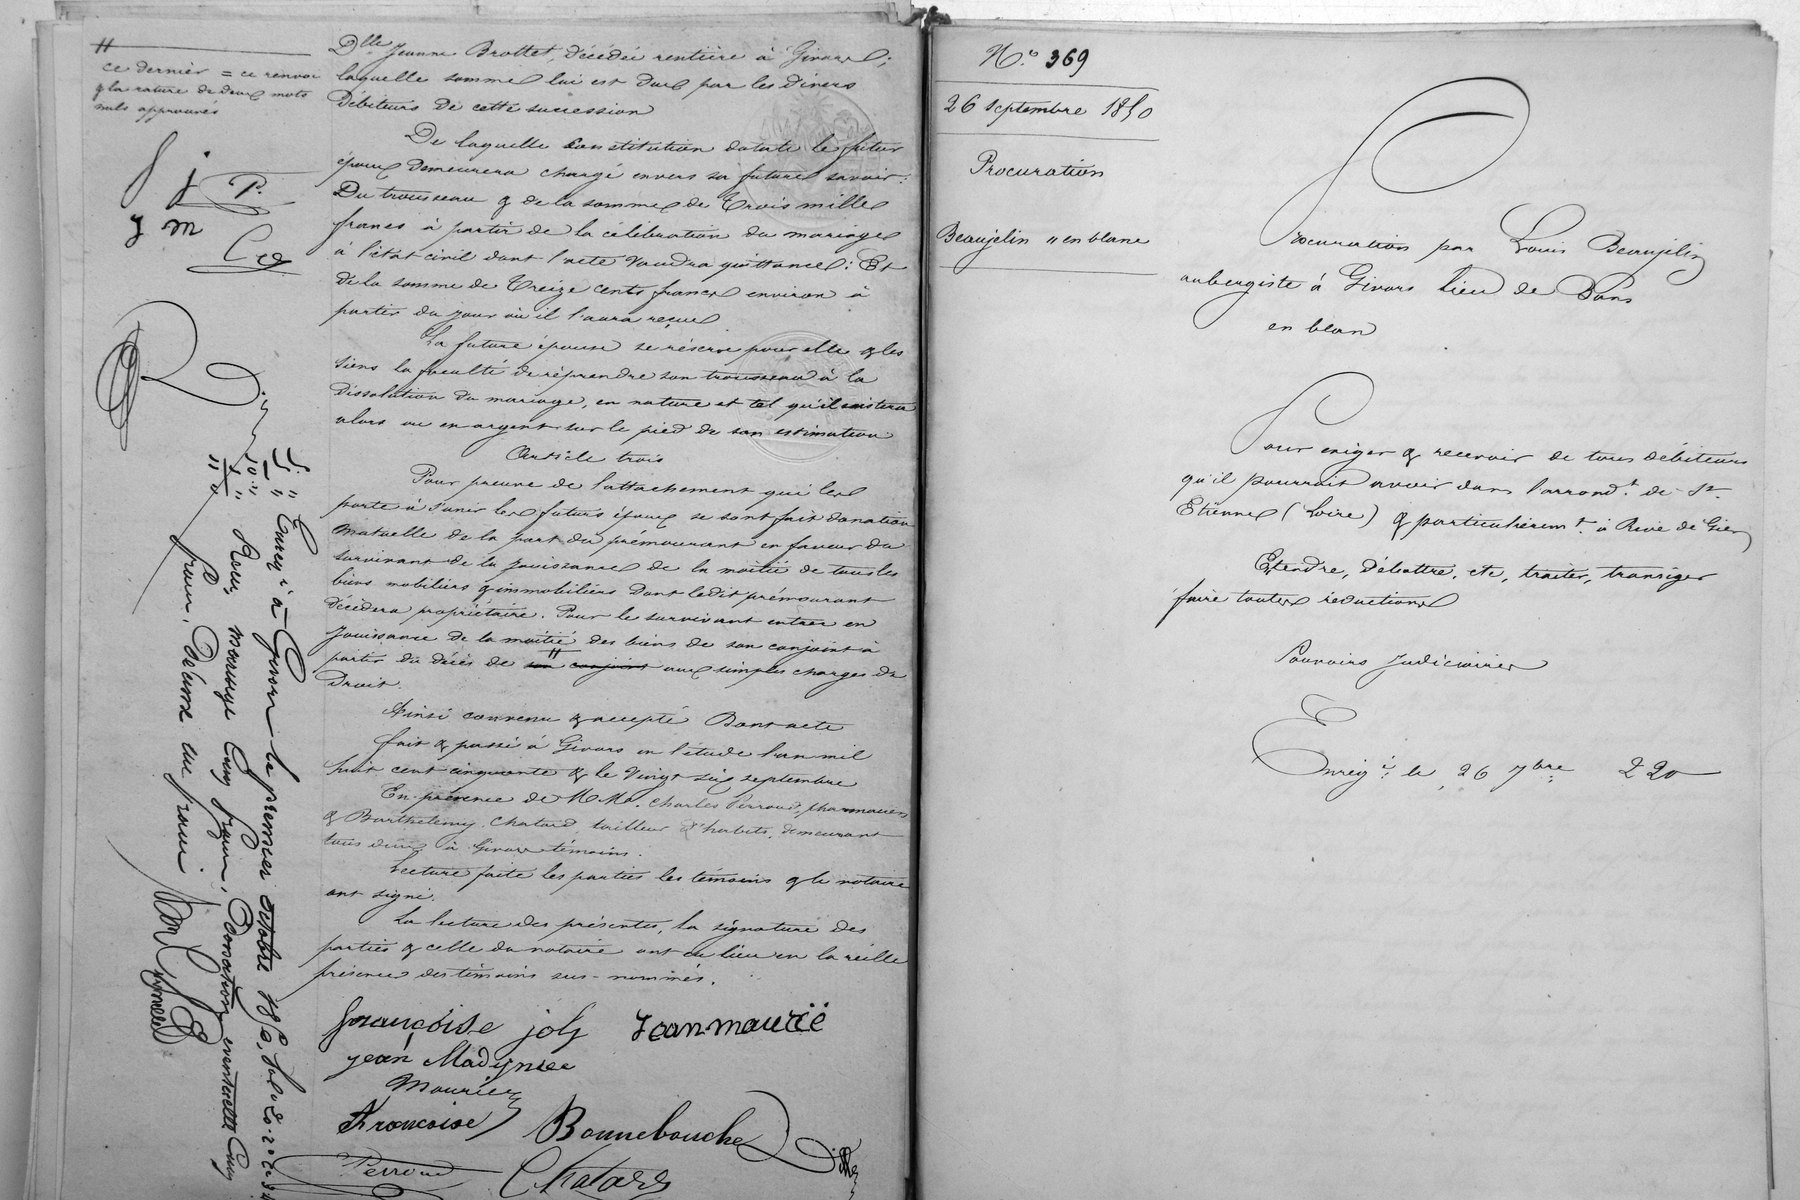 Dlle Jeanne Brottet, décédée rentière à Givors;
laquelle somme lui est due par les divers
Débiteurs de cette succession
De laquelle constitution dotale le futur
époux demeurera chargé envers sa future savoir:
Du trousseau & de la somme de Trois mille
francs à partir de la célébration du mariage
à l'état civil dont l'acte vaudra quittance: Et
de la somme de Treize cents francs environ à
partir du jour où il l'aura reçue
La future épouse se réserve pour elle & les
siens la faculté de réprendre son trousseau à la
dissolution du mariage, en nature et tel qu'il existera
alors ou en argent sur le pied de son estimation
Article trois
Pour preuve de l'attachement qui les
porte à s'unir les futurs époux se sont fait donation
mutuelle de la part du prémourant en faveur du
survivant de la jouissance de la moitié de tous les
biens mobiliers & immobiliers dont ledit prémourant
décédera propriétaire. Pour le survivant entrer en
jouissance de la moitié des biens de son conjoint à
partir du décès de son conjoint aux simples charges de
Droit.
Ainsi convenu & accepté Dont acte
fait & passé à Givors en l'étude l'an mil
huit cent cinquante & le vingt six septembre
En présence de M.Ms. Charles Perroud, pharmacien
& Barthelemy Chatard, tailleur d'habits, demeurant
tous deux à Givors témoins.
Lecture faite les parties les témoins & le notaire
ont signé.
La lecture des présentes, la signature des
parties & celle du notaire ont eu lieu en la réelle
présence des témoins sus-nommés.
françoise joly Jean maurïë
jean Madignier
Mourier
francoise Bonnebouche
Perroud Chatard
//
ce dernier = ce renvoi
& la rature de deux mots
nuls approuvés
f j P.
j m
Enreg.é à Givors le premier octobre 1850,
mariage cinq francs, Donation eventuelle cinq
francs, Décime un franc
N.o 369
26 Septembre 1850
Procuration
Beaujelin // en blanc
Procuration par Louis Beaujelin
aubergiste à Givors lieu de Bans
en blanc
Pour exiger & recevoir de tous débiteurs
qu'il pourrait avoir dans l'arrond.t de St.
Etienne (Loire) & particulièrem.t à Rive de Gier
Etendre, débattre, etc, traiter, transiger
faire toutes réductions
Pouvoirs Judiciaires
Enreg.é le 26 7bre 2 20